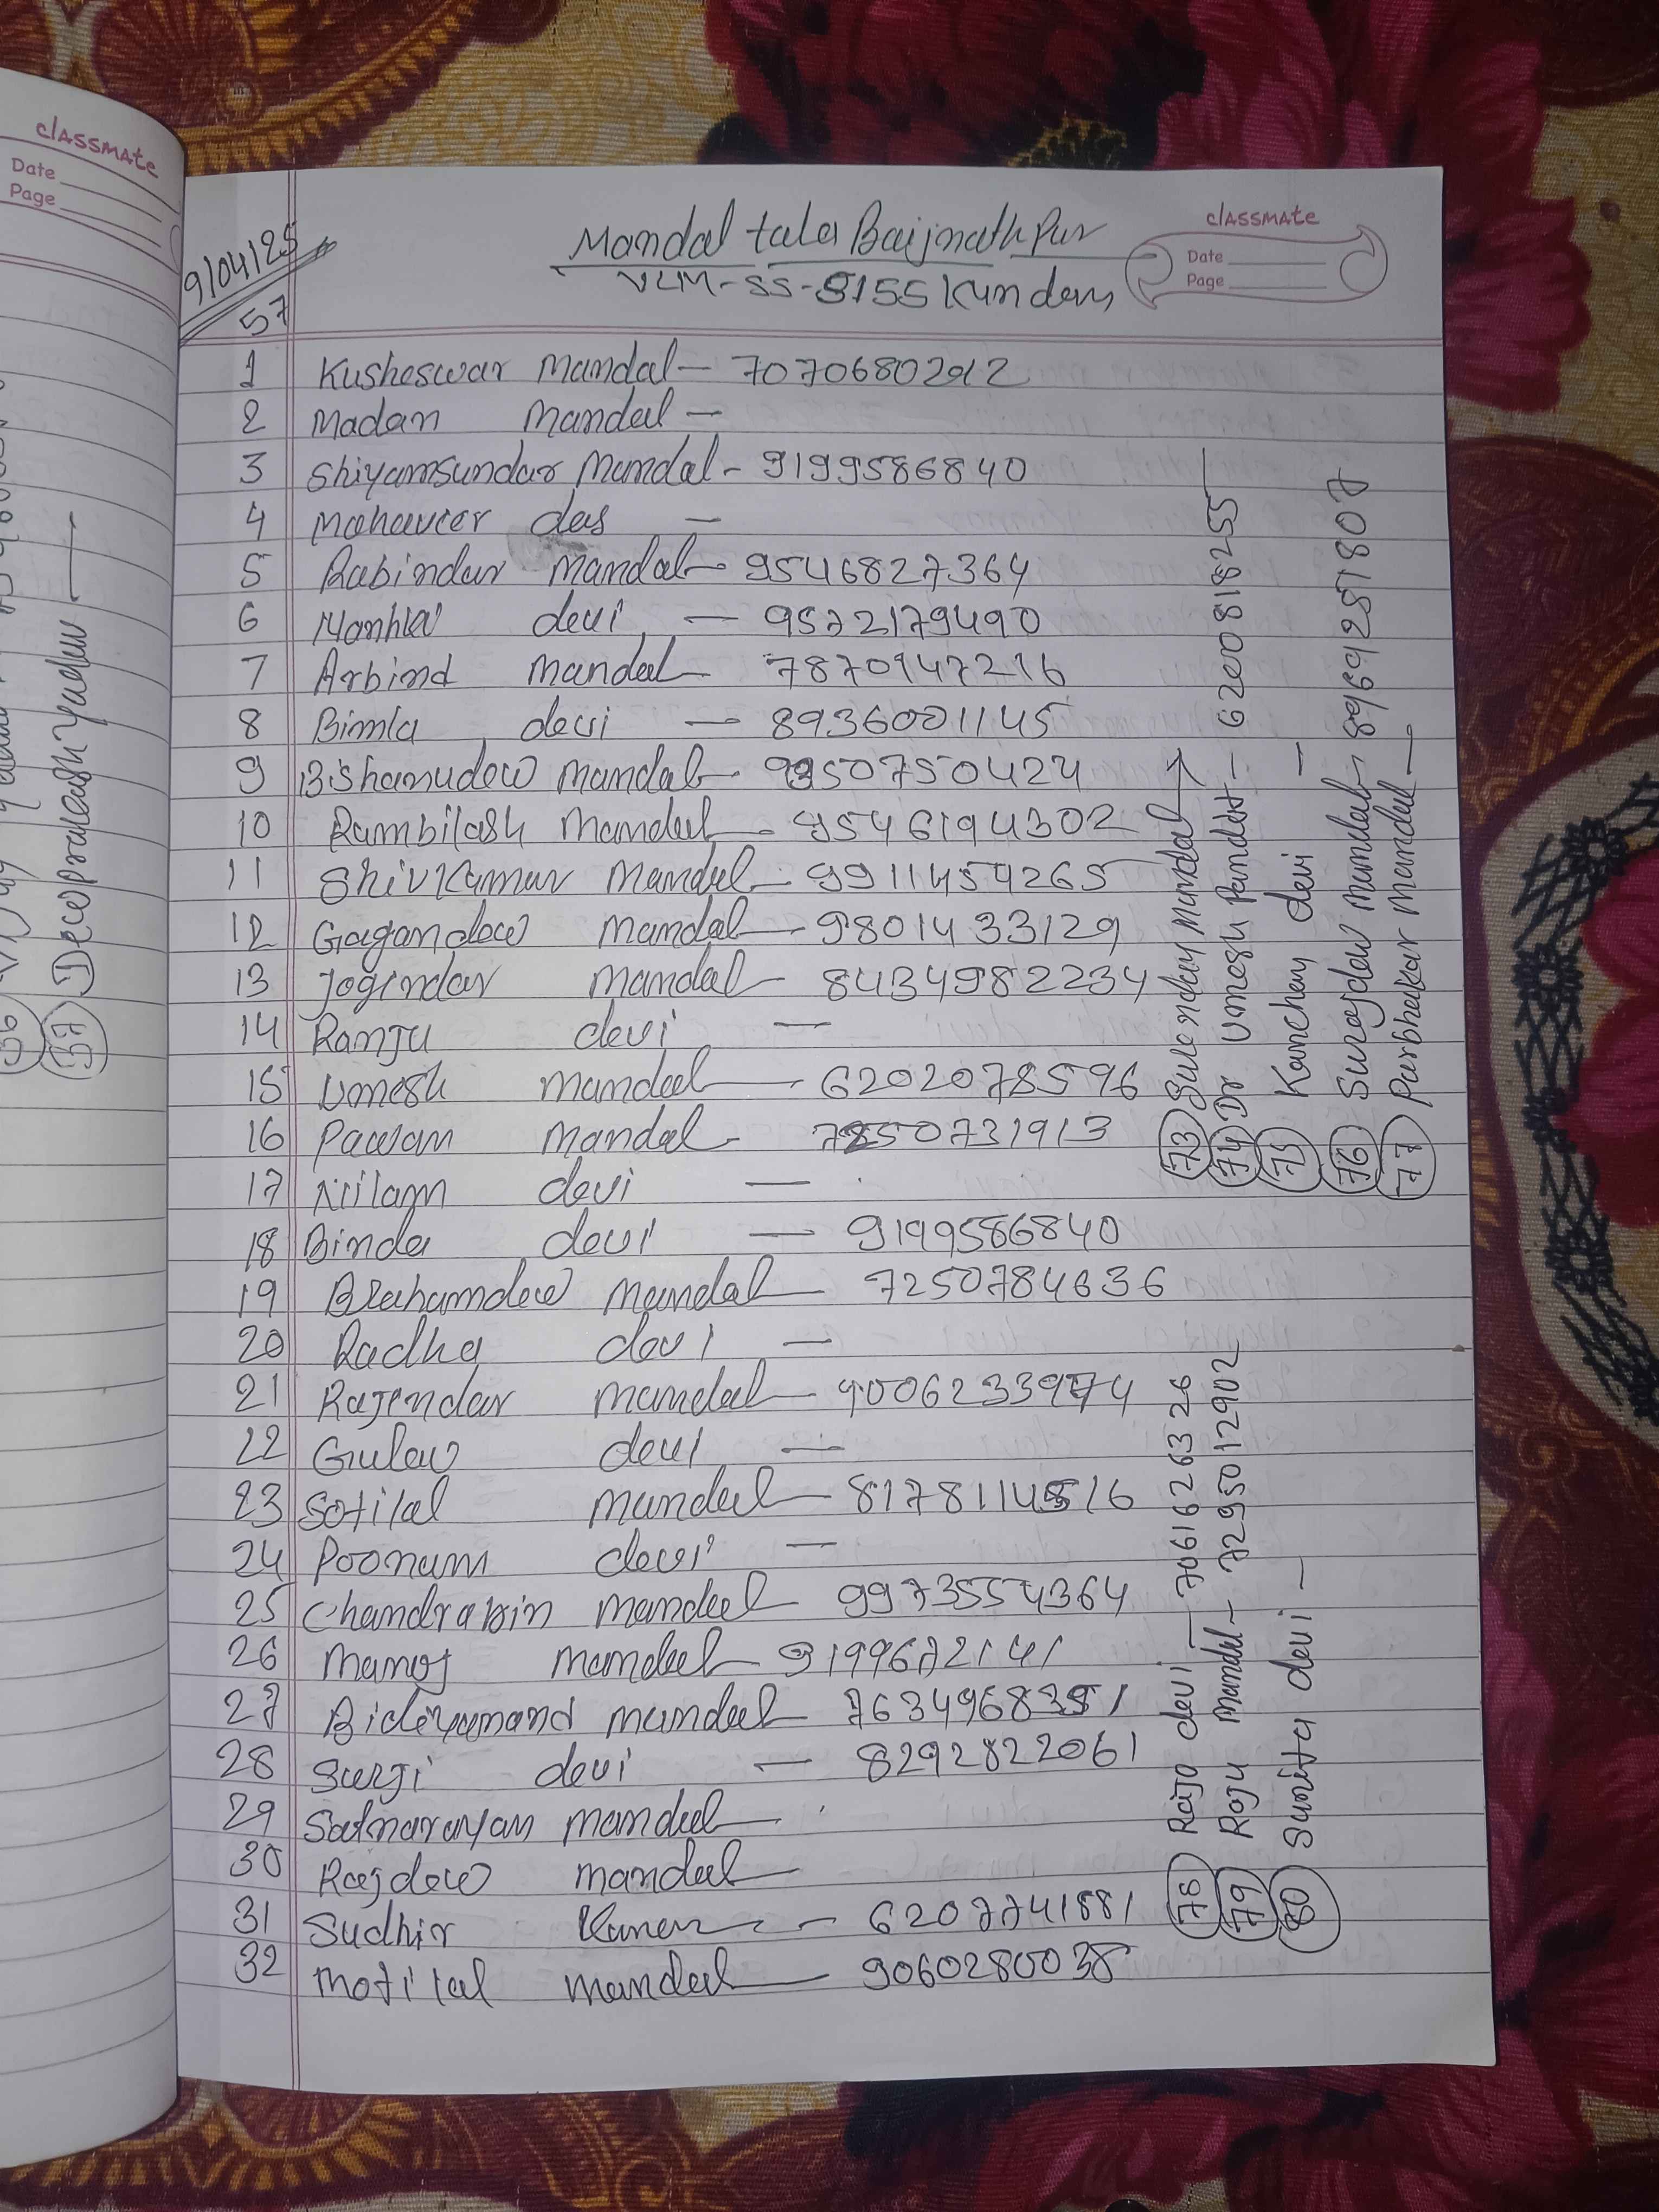 classmate
Date
Page
37 Deewprakash Yadew
9/04/25
57
Mandal tala Baijnathpur
VLM-SS-8155 Kundan
classmate
Date
Page
1 Kusheswar Mandal - 7070680292
2 Madan Mandal -
3 Shiyamsundar Mandal - 9199586840
4 Mahaveer das -
5 Rabindar Mandal - 9546827364
6 devi - 9572179490
7 Arbind Mandal - 7870947216
8 Bimla devi - 8936001145
9 Bishanudew Mandal - 50750424
10 Rambilash Mandal - 9546194302
11 Shivkumar Mandal - 9911454265
12 Gagandew Mandal - 9801433129
13 Jogindar Mandal - 8434982234
14 Ranju devi -
15 Umesh Mandal - 6202078596
16 Pawan Mandal -
17 Nilam devi -
18 Binda devi - 9199586840
19 Brahamdew Mandal - 7250784636
20 Radha devi -
21 Rajendar Mandal -
22 devi -
23 Sotilal Mandal -
24 Poonam devi -
25 Chandrakin Mandal - 9973554364
26 Manoj Mandal - 9199672141
27 Bideyanand Mandal -
28 Surji devi - 8292822061
29 Satnarayan Mandal -
30 Rajdew Mandal -
31 Sudhir - 6207741881
32 Motilal Mandal - 9060280038
73 Mandal
74 Dr Umesh Pandit - 6200818255
75 Kanchan devi -
76 Surajdew Mandal - 8969251807
77 Purbhakar Mandal -
78 Rajo devi - 7061626326
79 Raju Mandal - 7295012902
80 Sunita devi -